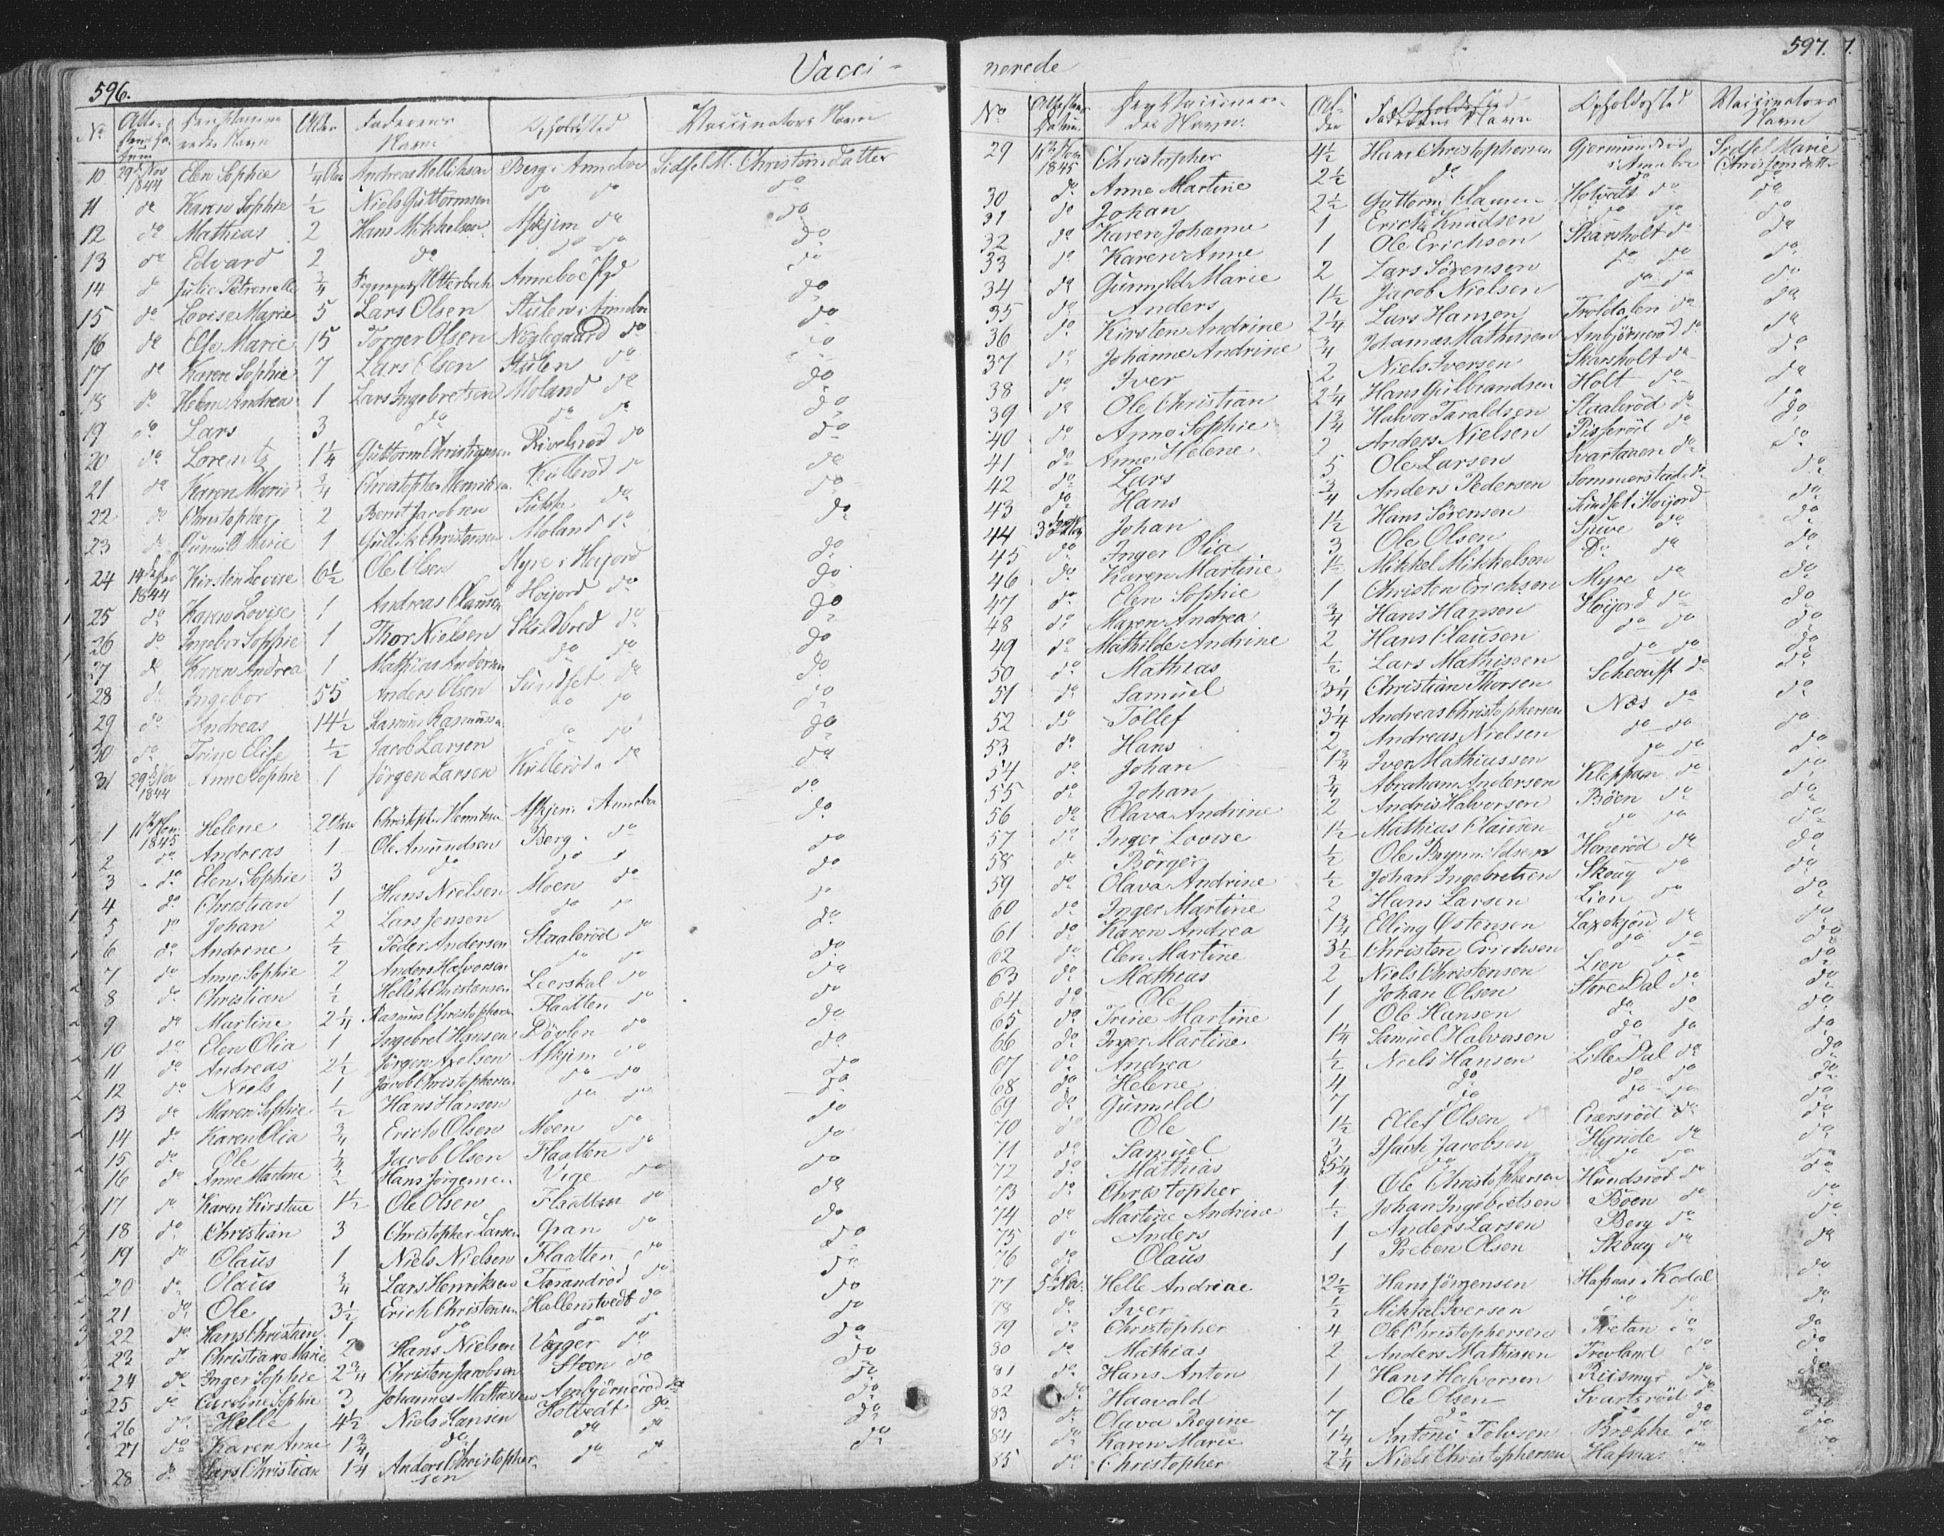 596.
Vacci-
No Alder
10 29de Nov 1844 Elen Sophie 1/4 Andreas Hellichsen Berg i Anneboe Sidsel M. Christensdatter
11 do Karen Sophie 1/2 Niels Guttormsen do do do
12 do Mathias 2 Hans Mikkelsen Askjem do do
13 do Edvard 2 do do do do
14 do Julie Petronelle 3/4 Anneboe do
15 do Lovise Marie 5 Lars Olsen Stulen i Anneboe do
16 do Else Marie 15 Torger Olsen Nøglegaard do do
17 do Karen Sophie 7 Lars Olsen Stulen do do
18 do Helene Andrea 1 Lars Ingebretsen Moland do do
19 do Lars 3 do do do do
20 do Lorentz 1 1/4 Guttorm Christiansen do do
21 do Karen Marie 3/4 Christopher Henriksen Kullerød do do
22 do Christopher 2 Bernt Jacobsen do do
23 do Gunnild Marie 1 Gullik Christensen Moland do do
24 14de Nov 1844 Kirsten Lovise 6 1/2 Ole Olsen Myre i Høijord do
25 do Karen Lovise 1 Andreas Clausen Høijord do do
26 do Ingebor Sophie 1 Thor Nielsen Skildbred do do
27 do Karen Andrea 1 Mathias Andersen do do do
28 do Ingebor 55 Anders Olsen Sundset do do
29 do Andreas 14 1/2 Rasmus Rasmussen do do do
30 do Trine Elise 1/2 Jacob Larsen do do do
31 29de Nov 1844 Anne Sophie 1 Jørgen Larsen Kullerød do do
1 1845 Helene 2 Christoph. Henriksen Askjem i Anneboe do
2 do Andreas 1 Ole Amundsen Berg do do
3 do Elen Sophie 3 do do do
4 do Christian 1 Hans Nielsen Moen do do
5 do Johan 2 Lars Jensen do do do
6 do Andrine 1/2 Peder Andersen Staalerød do do
7 do Anne Sophie 2 Anders Halvorsen do do do
8 do Christian 1/2 Hellik Christensen Leerskal do do
9 do Martine 2 1/4 Rasmus Christophersen Flaatten do do
10 do Elen Olia 1 Ingebret Hansen Bøvlen do do
11 do Andreas 2 1/2 Jørgen Axelsen Askjem do do
12 do Niels 1 Jacob Christophersen do do do
13 do Maren Sophie 1/2 Hans Hansen do do do
14 do Karen Olia 3/4 Erich Olsen Moen do do
15 do Ole 1/4 Jacob Olsen Flaatten do do
16 do Anne Martine 1/2 Hans Jørgensen Vige do do
17 do Karen Kirstine 1 1/2 Ole Olsen Flaatten do do
18 do Christian 3 Christopher Larsen Gran do do
19 do Olaus 1 Niels Nielsen Flaatten do do
20 do Olaus 3/4 Lars Henriksen Tarandrød do do
21 do Ole 3 1/2 Erich Christensen Hallenstvedt do do
22 do Hans Christian 1 do do do do
23 do Christiane Marie 2 Hans Nielsen Vegger do do
24 do Inger Sophie 2 3/4 Christen Jacobsen Steen do do
25 do Caroline Sophie 3 Johannes Mathisen Anbjørnerød do do
26 do Helle 4 1/2 Niels Hansen Hotvedt do do
27 do Karen Anne 1 3/4 do do do do
28 do Lars Christian 1 1/4 Anders Christophersen do do
597.
nerede
No Alder Opholdssted Vaccinators Navn
29 1845 Christopher 4 1/2 Hans Christophersen Gjermundrød i Anneboe Sidsel Marie Christensdatter
30 do Anne Martine 2 1/2 do do do
31 do Johan 2 1/2 Guttorm Clausen Hotvedt do do
32 do Karen Johanne 1 Erich Knudsen do do do
33 do Karen Anne 1 Ole Erichsen Skarsholt do do
34 do Gunnild Marie 2 Lars Sørensen do do do
35 do Anders 1 1/2 Jacob Nielsen do do do
36 do Kirsten Andrine 2 1/4 Lars Hansen Troldalen do do
37 do Johanne Andrine 3/4 Johannes Mathisen Anbjørnerød do do
38 do Iver 2 Niels Iversen Skarsholt do do
39 do Ole Christian 2 1/4 Hans Gulbrandsen Holt do do
40 do Anne Sophie 1 3/4 Halvor Taraldsen Staalerød do do
41 do Anne Helene 2 Anders Nielsen Pisserød do do
42 do Lars 5 Ole Larsen Svartaaen do do
43 do Hans 3/4 Anders Pedersen Sommerstad do do
44 Johan 1 1/2 Hans Sørensen Sundset i Høijord do
45 do Inger Olia 3 Ole Olsen Stuve do do
46 do Karen Martine 1 1/2 Mikkel Mikkelsen Do do do
47 do Elen Sophie 1 Christen Erichsen Myre do do
48 do Maren Andrea 3/4 Hans Hansen Høijord do do
49 do Mathilde Andrine 2 Hans Clausen do do do
50 do Mathias 1/2 Lars Mathissen do do do
51 do Samuel 3 1/4 Christian Thorsen Scheauff do do
52 do Tollef 3 1/4 Andreas Christophersen Næs do do
53 do Hans 2 Andreas Nielsen do do do
54 do Johan 1 3/4 Iver Mathiassen do do do
55 do Johan 3/4 Abraham Andersen Kleppan do do
56 do Olava Andrine 2 Andris Halvorsen Bøen do do
57 do Inger Lovise 1 1/2 Mathias Clausen do do do
58 do Børger 1/2 Ole Brynnildsen Hanerød do do
59 do Olava Andrine 1/2 Johan Ingebretsen Skoug do do
60 do Inger Martine 2 Hans Larsen Lien do do
61 do Karen Andrea 1 3/4 Elling Østensen Laxekjøn do do
62 do Elen Martine 3 1/2 Christen Erichsen do do do
63 do Mathias 2 Niels Christensen Lien do do
64 do Ole 1 Johan Olsen Store Dal do do
65 do Trine Martine 1 Ole Hansen do do do
66 do Inger Martine 1 1/4 Samuel Halvorsen do do do
67 do Andrea 1/2 Niels Hansen Lille Dal do do
68 do Helene 4 do do do do
69 do Gunnild 7 do do do do
70 do Ole 1 1/2 Ellef Olsen do do
71 do Samuel 3 Isach Jacobsen Hynde do do
72 do Mathias 5 1/4 do do do do
73 do Christopher 1 Ole Christophersen Hundsrød do do
74 do Martine Andrine 1/2 Johan Ingebretsen Bøen do do
75 do Anders 1 Anders Larsen Berg do do
76 do Olaus 1 Preben Olsen Skoug do do
77 5te Nov. Helle Andreae 2 1/2 Hans Jørgensen Hafnas i Kodal do
78 do Iver 1/2 Mikkel Iversen do do do
79 do Christopher 4 Ole Christophersen Tretan do do
80 do Mathias 2 Anders Mathissen Trevland do do
81 do Hans Anton 1 Hans Halvorsen Riismyr do do
82 do Haavald 1 Ole Olsen Svartsrød do do
83 do Olava Regine 7 do do do do
84 do Karen Marie 1 1/4 Anton Tolvsen Brekke do do
85 do Christopher 2 1/4 Niels Christophersen Hafnas do